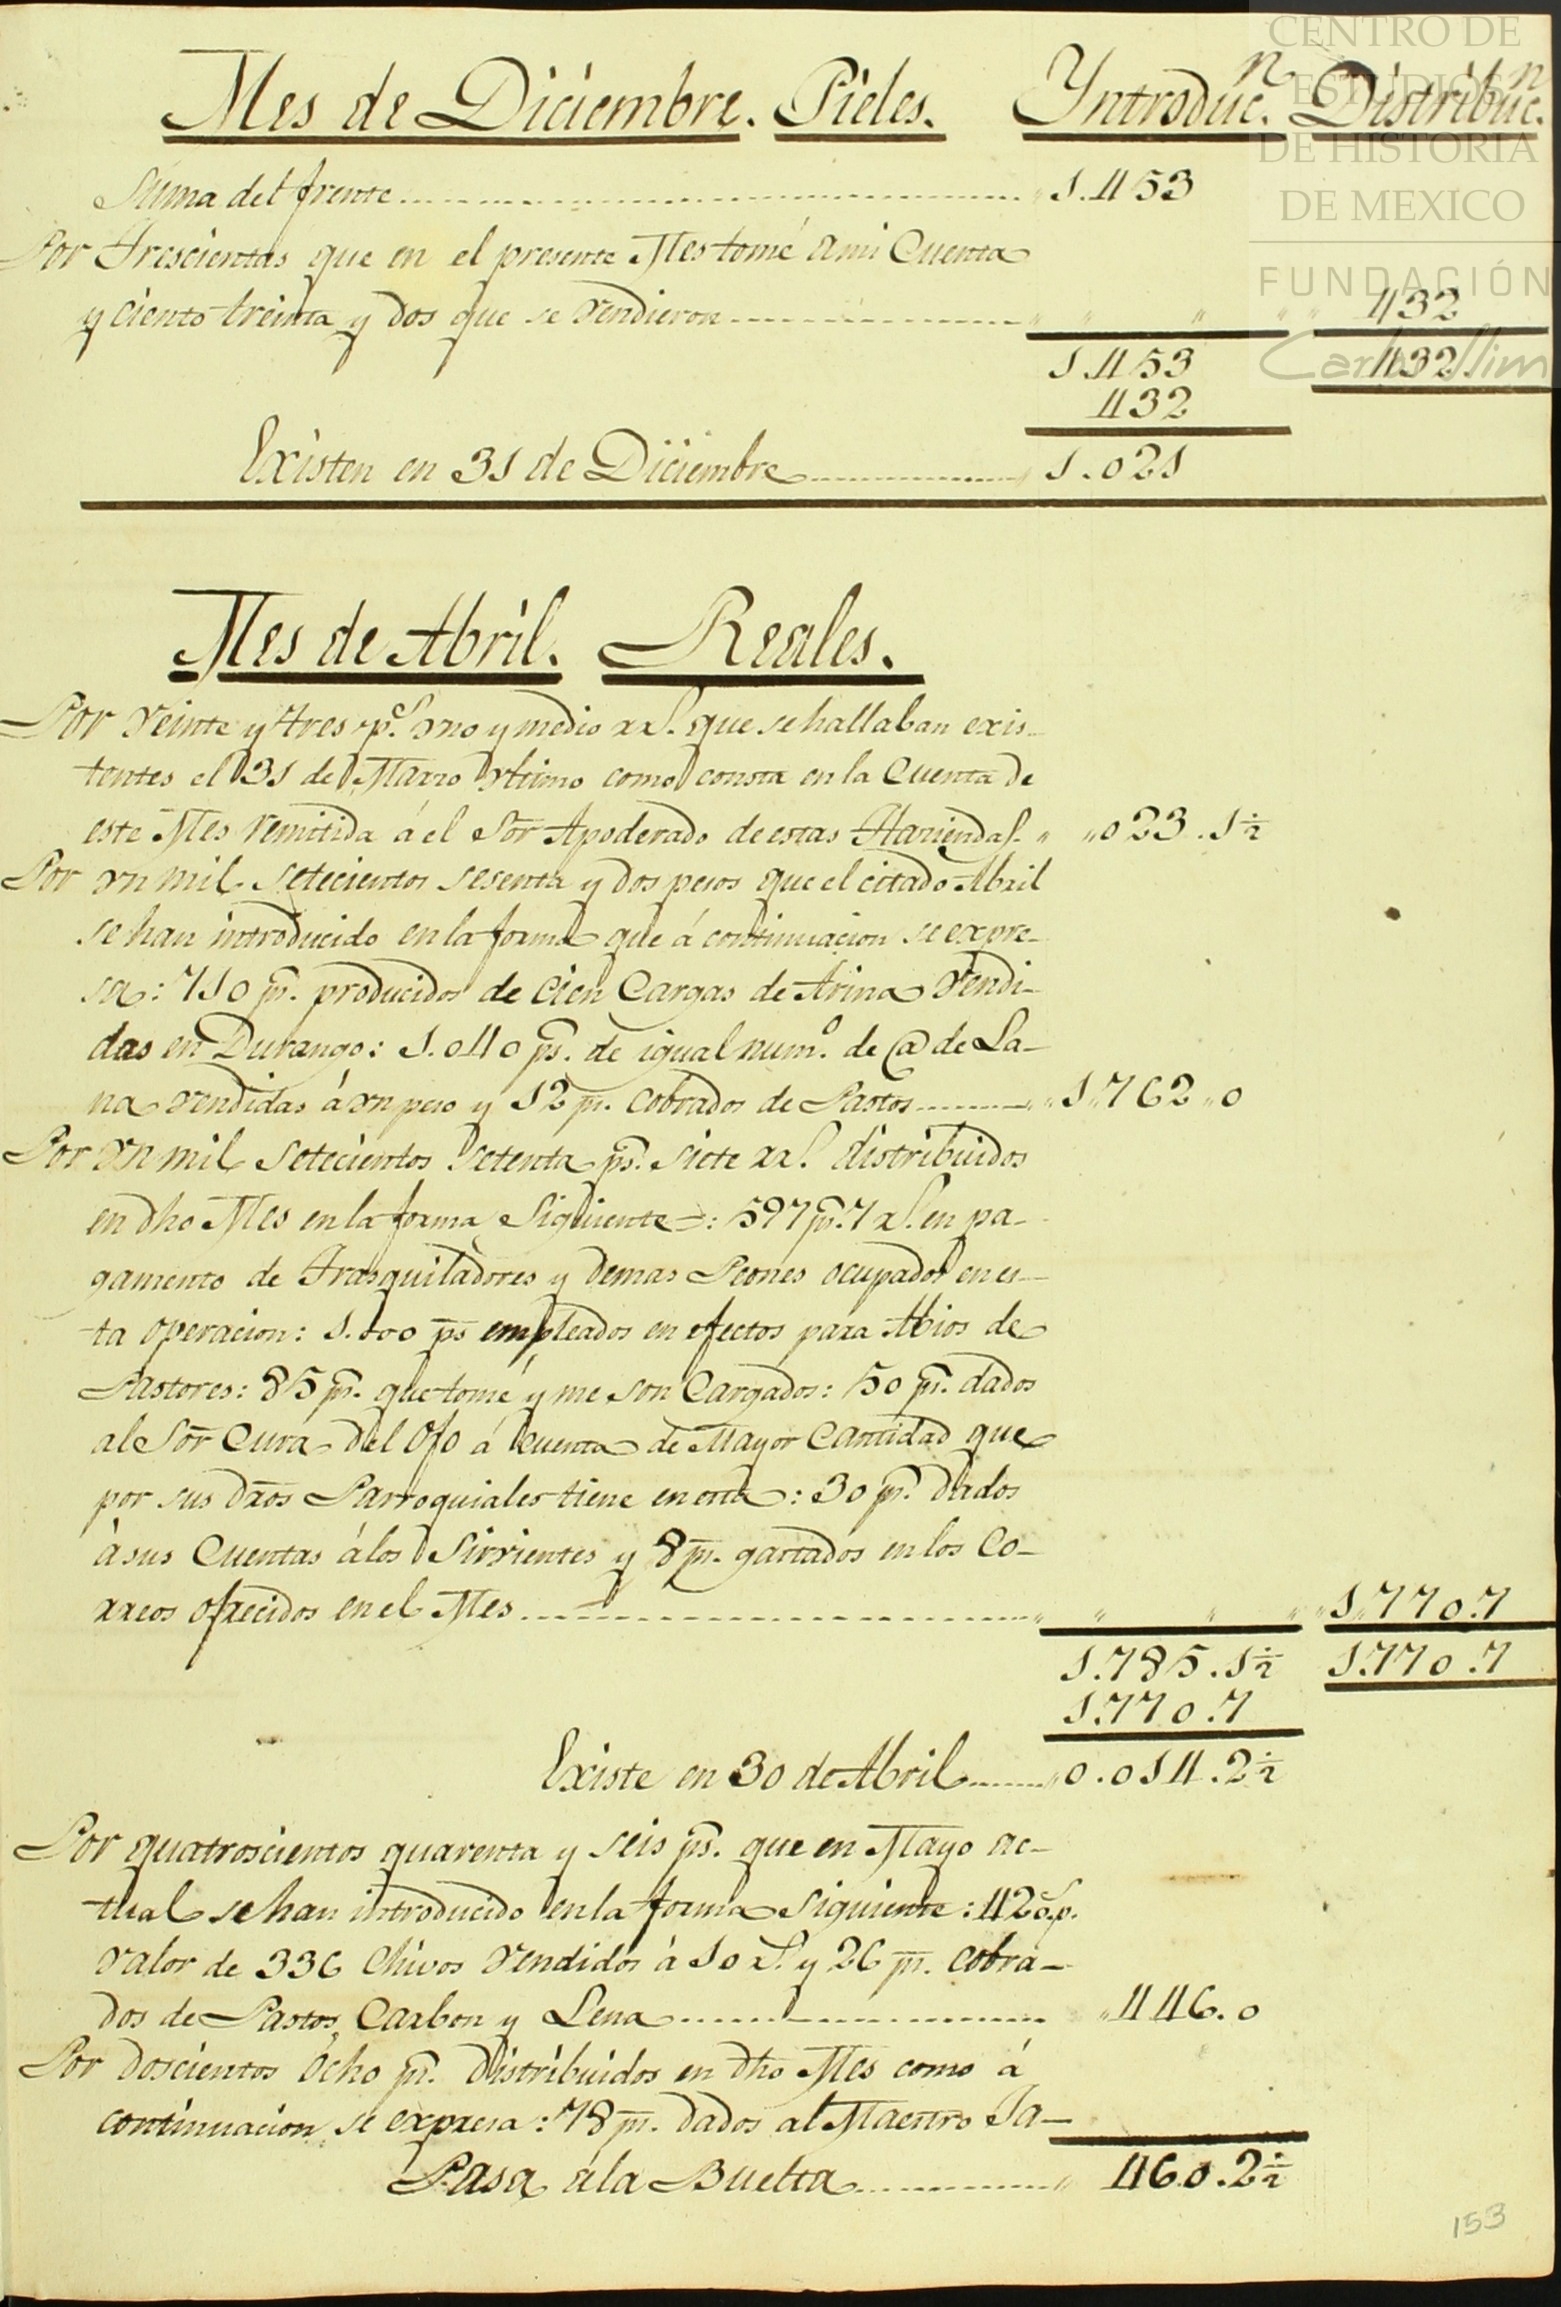 CENTRO DE
ESTUDIOS
DE HISTORIA
DE MEXICO
FUNDACIÓN
Carlos Slim
Mes de Diciembre. Pieles. Yntroduc.n Distribuc.n
Suma del frente 1.453
Por Trescientas que en el presente Mes tomé âmi Cuenta
y ciento treinta y dos que se vendieron " " " " 432
1.453 432
432
Existen en 31 de Diciembre 1.021
Mes de Abril. Reales.
Por veinte y tres p.s vno y medio rr.s que se hallaban exis-
tentes el 31 de Marzo vltimo como consta en la Cuenta de
este Mes remitida á el Sōr Apoderado de estas Haziendas. " " 023.1½
Por vn mil setecientos sesenta y dos pesos que el citado Abril
se han introducido en la forma que á continuacion se expre-
sa: 710 ps. producidos de cien Cargas de Arina vendi-
das en Durango: 1.040 ps. de igual num.o de @ de La-
na vendidas á vn peso y 12 ps. cobrados de Pastos 1"762"0
Por vn mil setecientos setenta ps. siete rr.s distribuidos
en dho Mes en la forma Siguiente: 597 ps. 7 r.s en pa-
gamento de Trasquiladores y demas Peones ocupados en es-
ta operacion: 1.000 ps empleados en efectos para Abios de
Pastores: 85 ps. que tomé y me son Cargados: 50 ps. dados
al Sōr Cura del Ojo á cuenta de Mayor Cantidad que
por sus dr̄os Parroquiales tiene en esta: 30 ps. dados
à sus Cuentas álos Sirvientes y 8 ps. gastados en los Co-
rreos ofrecidos en el Mes " " " " 1"770.7
1.785.1½ 1.770.7
1.770.7
Existe en 30 de Abril 0.014.2½
Por quatroscientos quarenta y seis ps. que en Mayo ac-
tual se han introducido en la forma siguiente: 420 p.s
valor de 336 Chivos vendidos á 10 r.s y 26 ps. cobra-
dos de Pastos, Carbon y Lena " 446.0
Por doscientos ocho ps. distribuidos en dho Mes como á
continuacion se expresa: 78 ps. dados al Maestro Ja-
Pasa ála Buelta " 460.2½
153